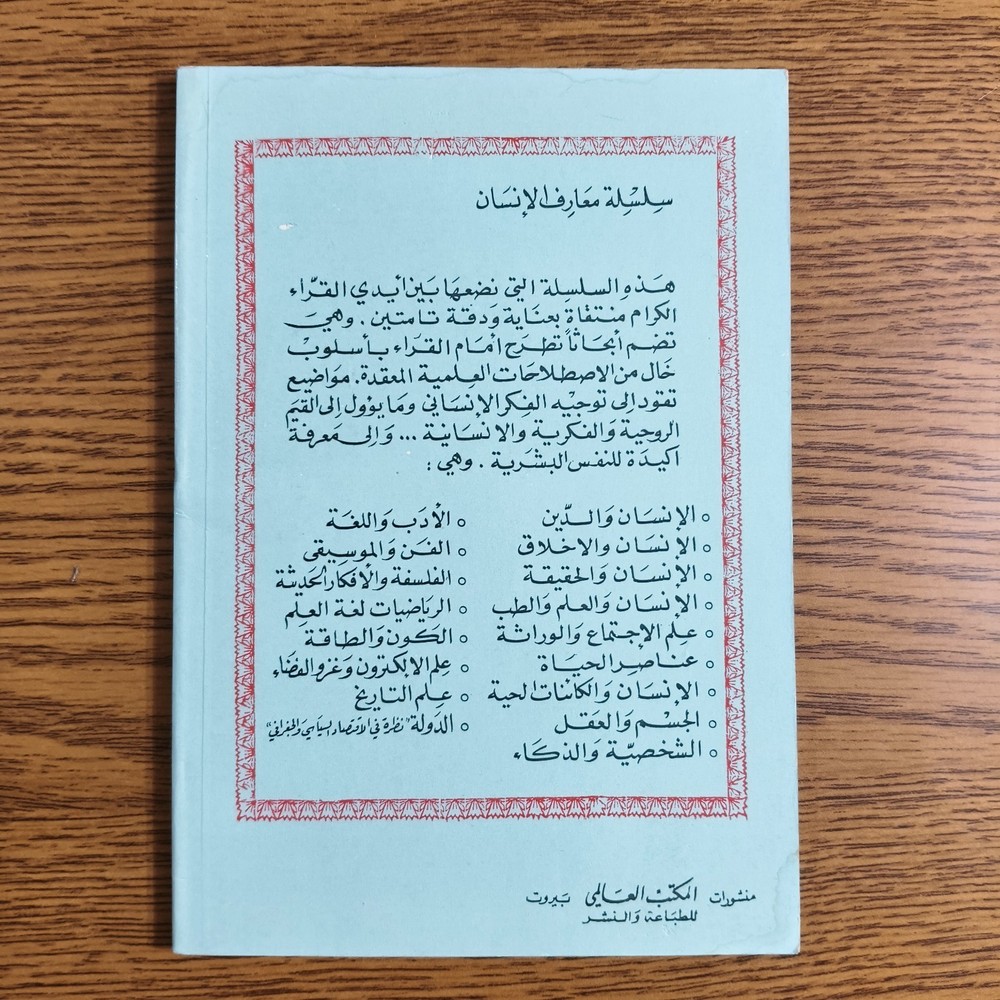 سلسلة معارف الإنسان
هذه السلسلة التي نضعها بين أيدي القرّاء
الكرام منتقاة بعناية ودقة تامتين. وهي
تضم أبحاثاً تطرح أمام القراء بأسلوب
خال من الاصطلاحات العلمية المعقدة. مواضيع
تقود إلى توجيه الفكر الإنساني وما يؤول إلى القيم
الروحية والفكرية والانسانية ... والى معرفة
اكيدة للنفس البشرية. وهي:
○ الإنسان والدّين
○ الإنسان والاخلاق
○ الإنسان والحقيقة
○ الإنسان والعلم والطب
○ علم الإجتماع والوراثة
○ عناصر الحياة
○ الإنسان والكائنات الحية
○ الجسم والعقل
○ الشخصيّة والذكاء
○ الأدب واللغة
○ الفن والموسيقى
○ الفلسفة والأفكار الحديثة
○ الرياضيات لغة العلم
○ الكون والطاقة
○ علم الالكترون وغزو الفضاء
○ علم التاريخ
○ الدولة "نظرة في الاقتصاد السياسي والجغرافي"
منشورات المكتب العالمي بيروت
للطباعة والنشر